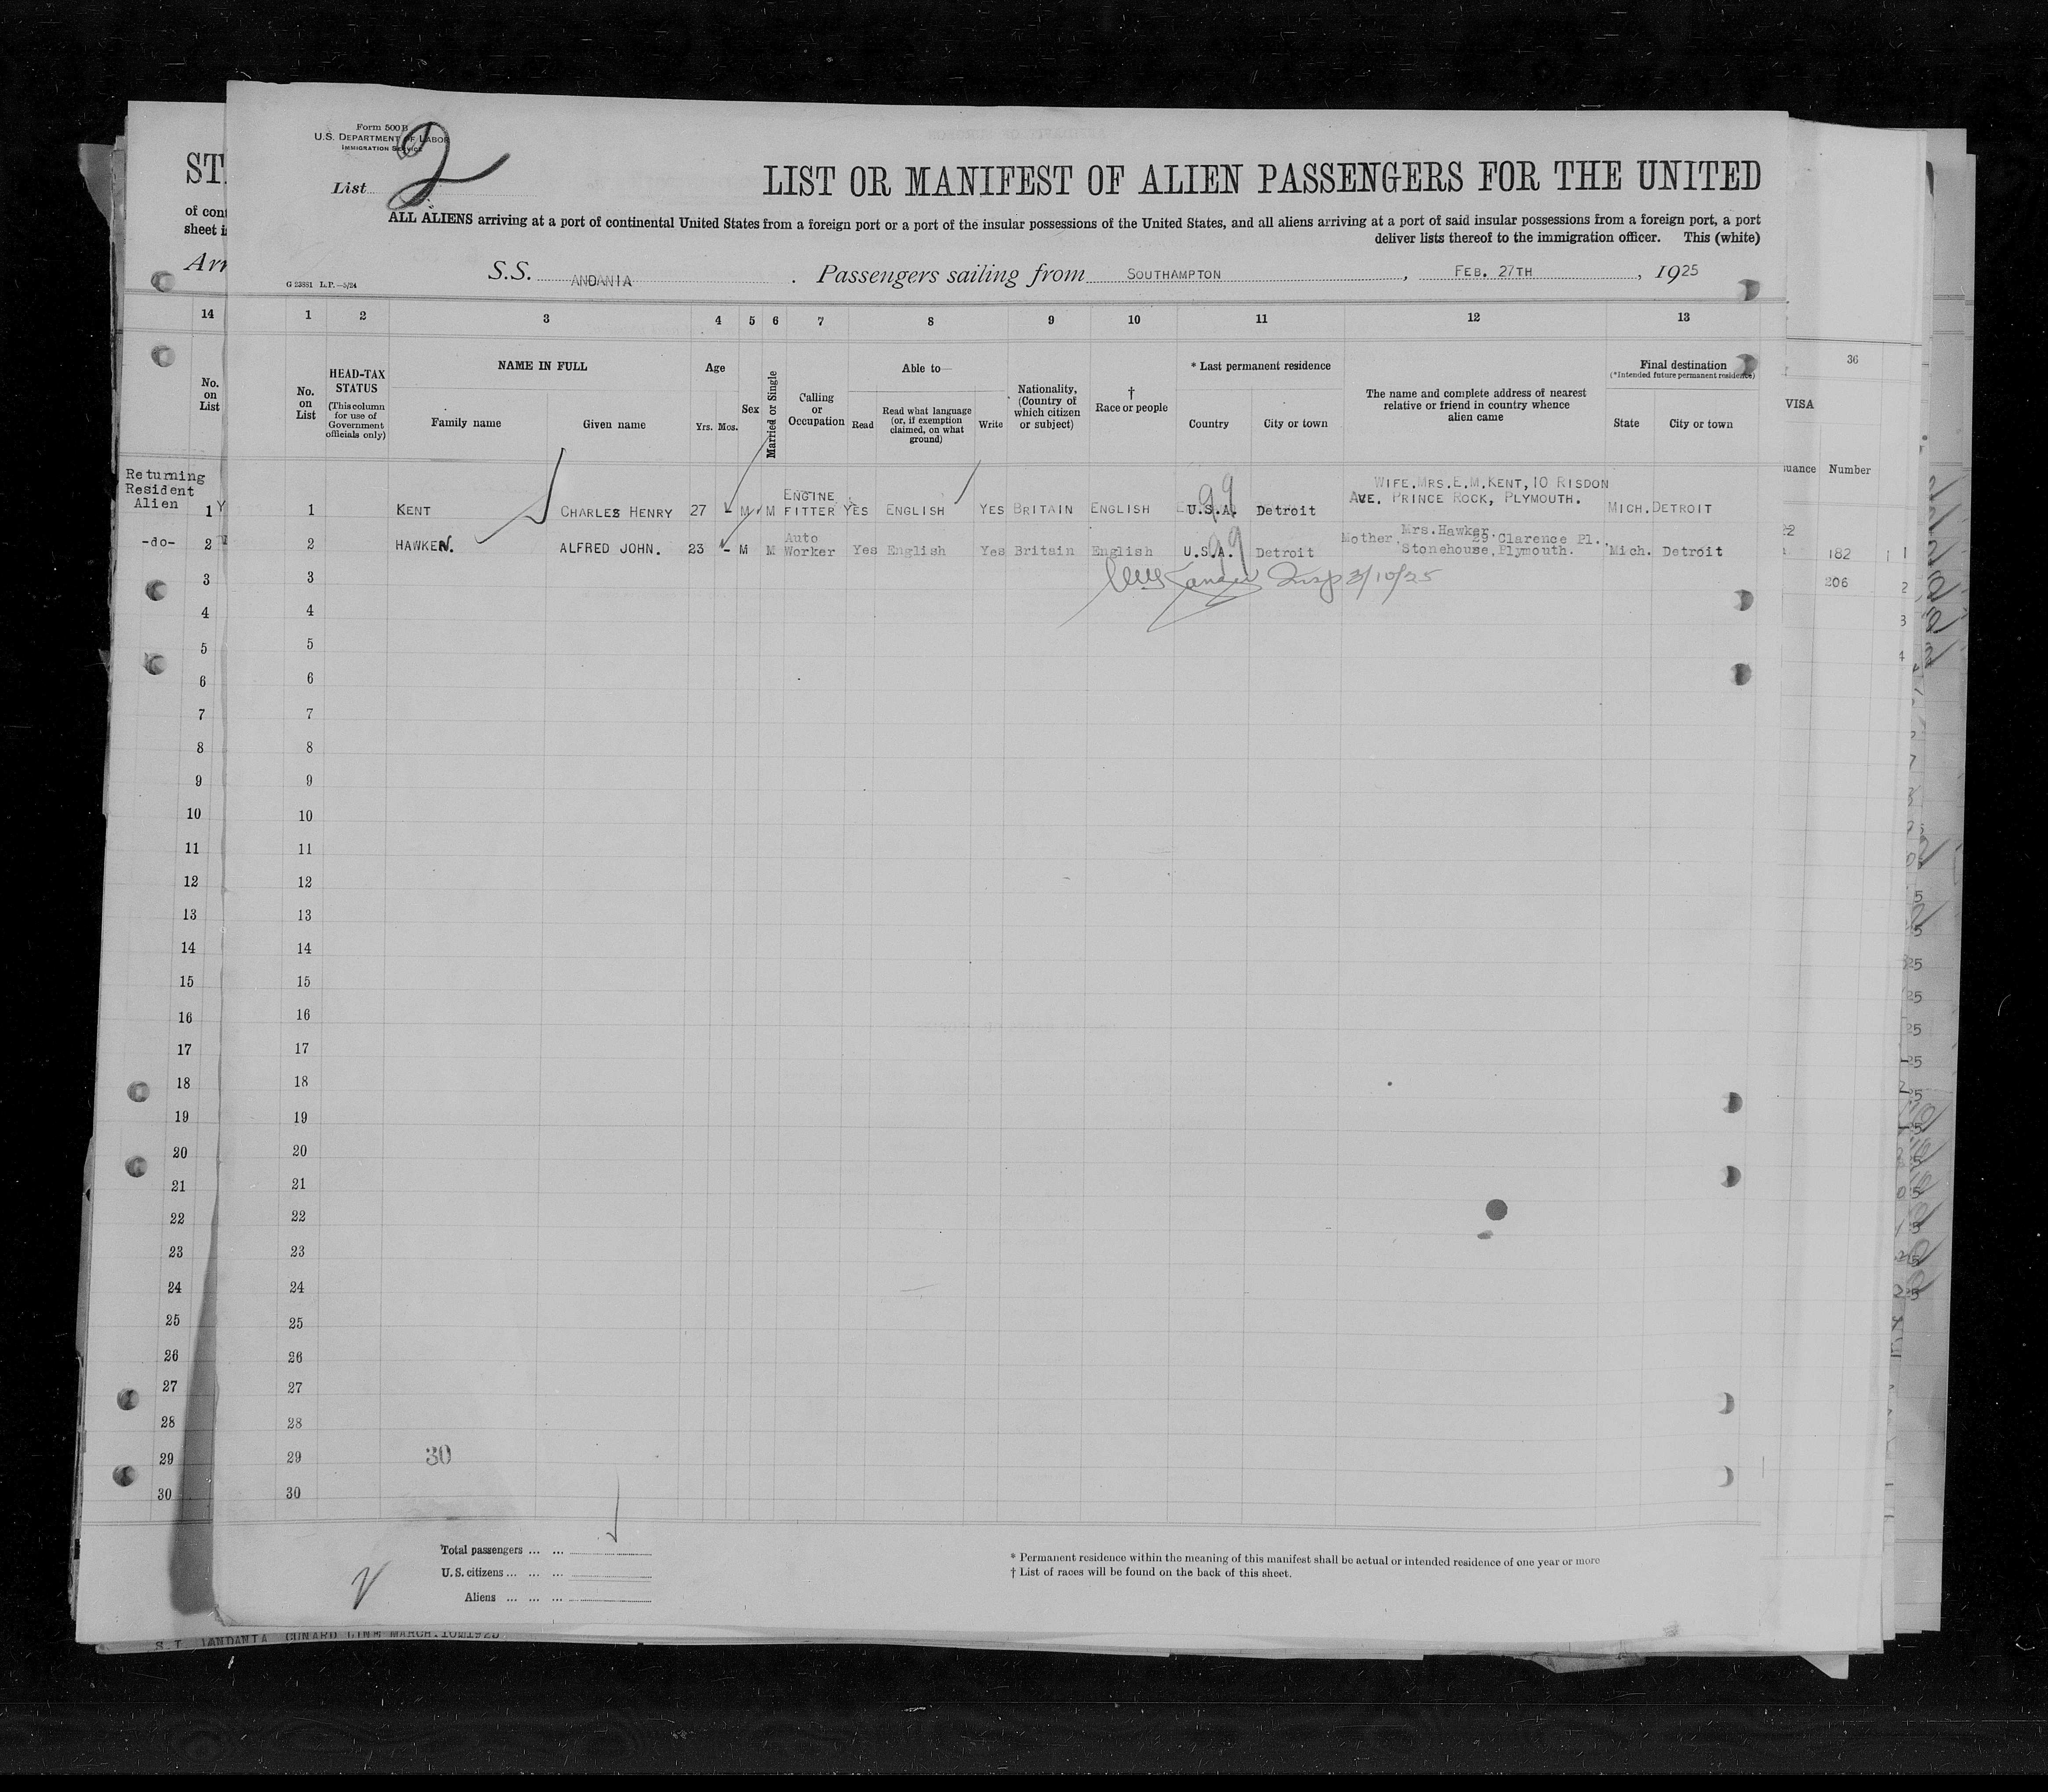 Form 500 B
U.S. DEPARTMENT OF LABOR
IMMIGRATION SERVICE
List 2
LIST OR MANIFEST OF ALIEN PASSENGERS FOR THE UNITED
ALL ALIENS arriving at a port of continental United States from a foreign port or a port of the insular possessions of the United States, and all aliens arriving at a port of said insular possessions from a foreign port, a port
deliver lists thereof to the immigration officer. This (white)
S.S. ANDANIA . Passengers sailing from SOUTHAMPTON , FEB. 27TH , 1925
G 23881 L.P.—5/24
14 1 2 3 4 5 6 7 8 9 10 11 12 13 36
No. on List
No. on List
HEAD-TAX STATUS
(This column for use of Government officials only)
NAME IN FULL
Family name Given name
Age
Yrs. Mos.
Sex
Married or Single
Calling or Occupation
Able to—
Read
Read what language (or, if exemption claimed, on what ground)
Write
Nationality, (Country of which citizen or subject)
†
Race or people
* Last permanent residence
Country City or town
The name and complete address of nearest relative or friend in country whence alien came
Final destination
(*Intended future permanent residence)
State City or town
VISA
Number
Returning
Resident
Alien
1 1 KENT CHARLES HENRY 27 M M ENGINE FITTER YES ENGLISH YES BRITAIN ENGLISH U.S.A. Detroit WIFE.MRS.E.M.KENT,10 RISDON AVE. PRINCE ROCK, PLYMOUTH. MICH.DETROIT
99
-do- 2 2 HAWKEN. ALFRED JOHN. 23 - M M Auto Worker Yes English Yes Britain English U.S.A. Detroit Mother, Mrs.Hawker, 29 Clarence Pl., Stonehouse, Plymouth. Mich. Detroit
99
182
206
Insp 3/10/25
3 3
4 4
5 5
6 6
7 7
8 8
9 9
10 10
11 11
12 12
13 13
14 14
15 15
16 16
17 17
18 18
19 19
20 20
21 21
22 22
23 23
24 24
25 25
26 26
27 27
28 28
29 29
30
30 30
Total passengers ... ...
U.S. citizens ... ... ...
Aliens ... ... ...
* Permanent residence within the meaning of this manifest shall be actual or intended residence of one year or more
† List of races will be found on the back of this sheet.
ANDANIA CUNARD LINE MARCH.10 1925